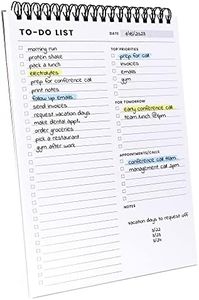 TO-DO LIST
DATE 4/18/2023
morning run
protein shake
pack a lunch
electrolytes
prep for conference call
print notes
follow up emails
send invoices
request vacation days
make dental appt.
order groceries
pick a restaurant
gym after work
TOP PRIORITIES
prep for call
invoices
emails
gym
FOR TOMORROW
early conference call
team lunch @1pm
APPOINTMENTS/CALLS
conference call 11am
management call 3pm
NOTES
vacation days to request off
5/22
5/23
5/24